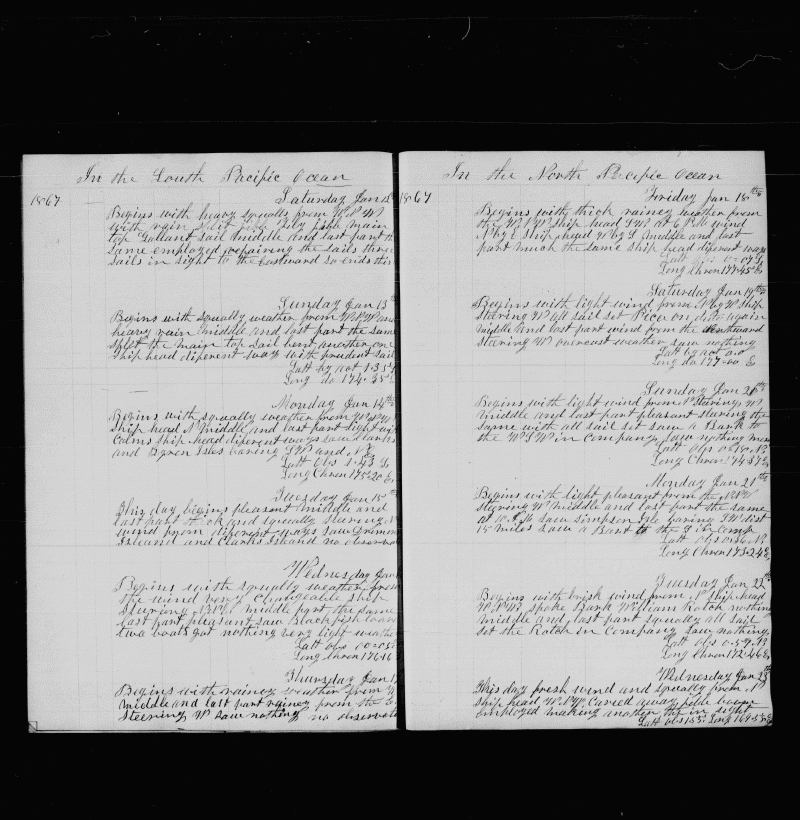 In the South Pacific Ocean
1867
Saturday Jan 12
Begins with heavy squalls from W.N.W
with rain split jib main
top Gallant sail Middle and last part the
same employed repairing the sails three
sails in sight to the Eastward so ends this
Sunday Jan 13th
Begins with squally weather from W.N.W and
heavy rain middle and last part the same
split the main top sail bent another one
Ship head diferent ways with prudent sail
Latt by act 1.35
Long do 174.35 E
Monday Jan 14th
Begins with squally weather from W.N.W
Ship head N Middle and last part light with
Calms ship head diferent ways saw Clarks
and Byron Isles baring S.W and N.E
Latt obs 1.43 So
Long Chron 175.20 E
Tuesday Jan 15th
This day begins pleasant middle and
last part thick and squally stearing N
wind from diferent ways saw Drumon
Island and Clarks Island no observa
Wednesday Jan
Begins with squally weather from
the wind very Changeable ship
Stearing middle part the same
last part pleasant saw Blackfish lowered
two boats got nothing very light weathe
Latt obs 00.05
Long Chron 176.16
Thursday Jan 17
Begins with rainey weather from
Middle and last part rainey from the E
Stearing W saw nothing no observat
In the North Pacific Ocean
1867
Friday Jan 18th
Begins with thick rainey weather from
the W.N.W Ship head S.W at 6 P.M wind
N by E ship head W by S Middle and last
part much the same ship head diferent ways
Latt obs 0.07 S
Long Chron 177.45 E
Saturday Jan 19th
Begins with light wind from N by W ship
stearing W all sail set Pica on duty again
Middle and last part wind from the
stearing W overcast weather saw nothing
Latt by act 0.0
Long do 177.00 E
Sunday Jan 20th
Begins with light wind from N stearing W
Middle and last part pleasant stearing the
same with all sail set saw a Bark to
the W.S.W in company saw nothing more
Latt obs 0.18 N
Long Chron 174.57 E
Monday Jan 21th
Begins with light pleasant from the N.N.W
Stearing W Middle and last part the same
at 10 A M saw Simpson Isle baring S.W dist
15 miles saw a Bark to the S in Comp
Latt obs 0.36 N
Long Chron 173.24 E
Tuesday Jan 22th
Begins with brisk wind from N ship head
W.N.W spoke Bark William Rotch nothing
Middle and last part squally all sail
set the Rotch in Company saw nothing
Latt obs 0.59 N
Long Chron 172.46 E
Wednesday Jan 23th
This day fresh wind and squally from N
Ship head W.N.W Caried away jibb boom
employed making another the in sight
Latt obs 1.55 Long 169.53 E